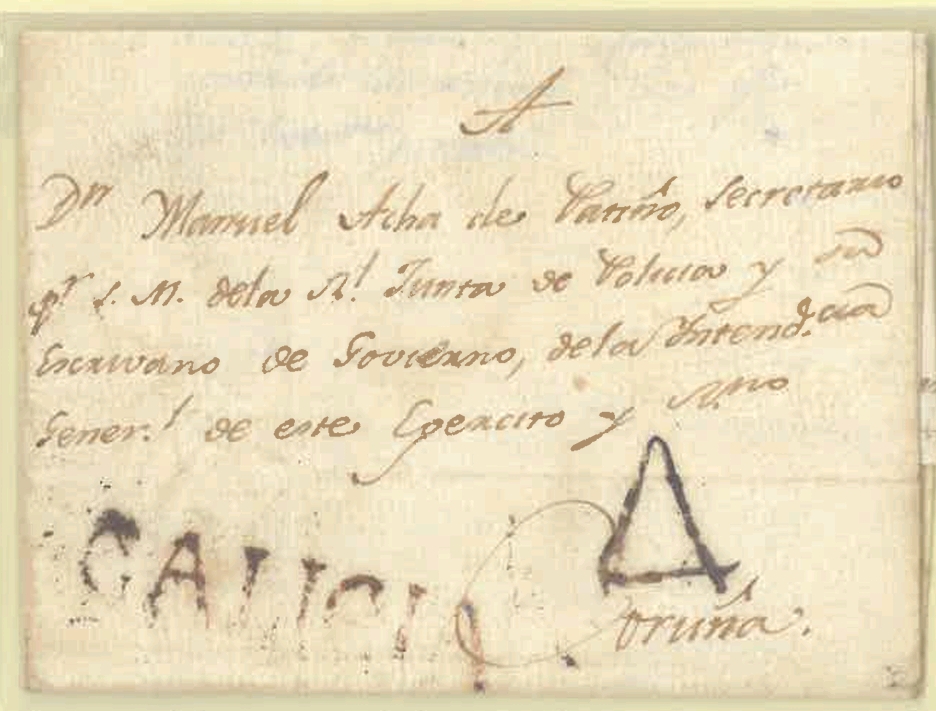 A
Dn Manuel Acha de Patiño, Secretario
pr S. M. dela Rl Junta de Policia y su
Escrivano de Govierno, dela Intend.cia
Gener.l de este Egercito y R.no
4
GALICIA
Coruña.